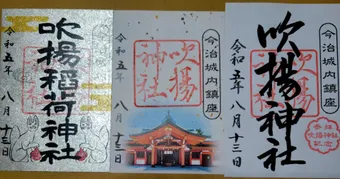 今治城内鎮座
吹揚神社
令和五年
八月十三日
今治城内鎮座
吹揚
神社
令和五年
八月十三日
吹揚稲荷神社
令和五年
八月十三日